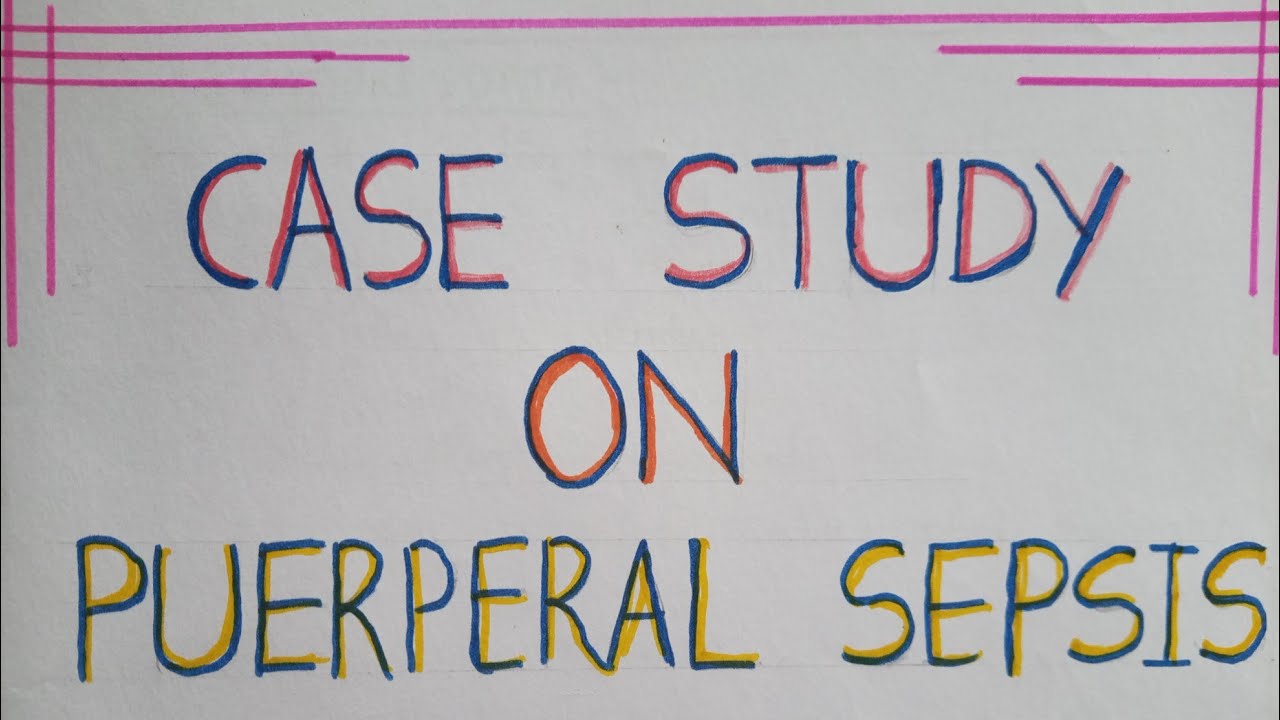 CASE STUDY
ON
PUERPERAL SEPSIS